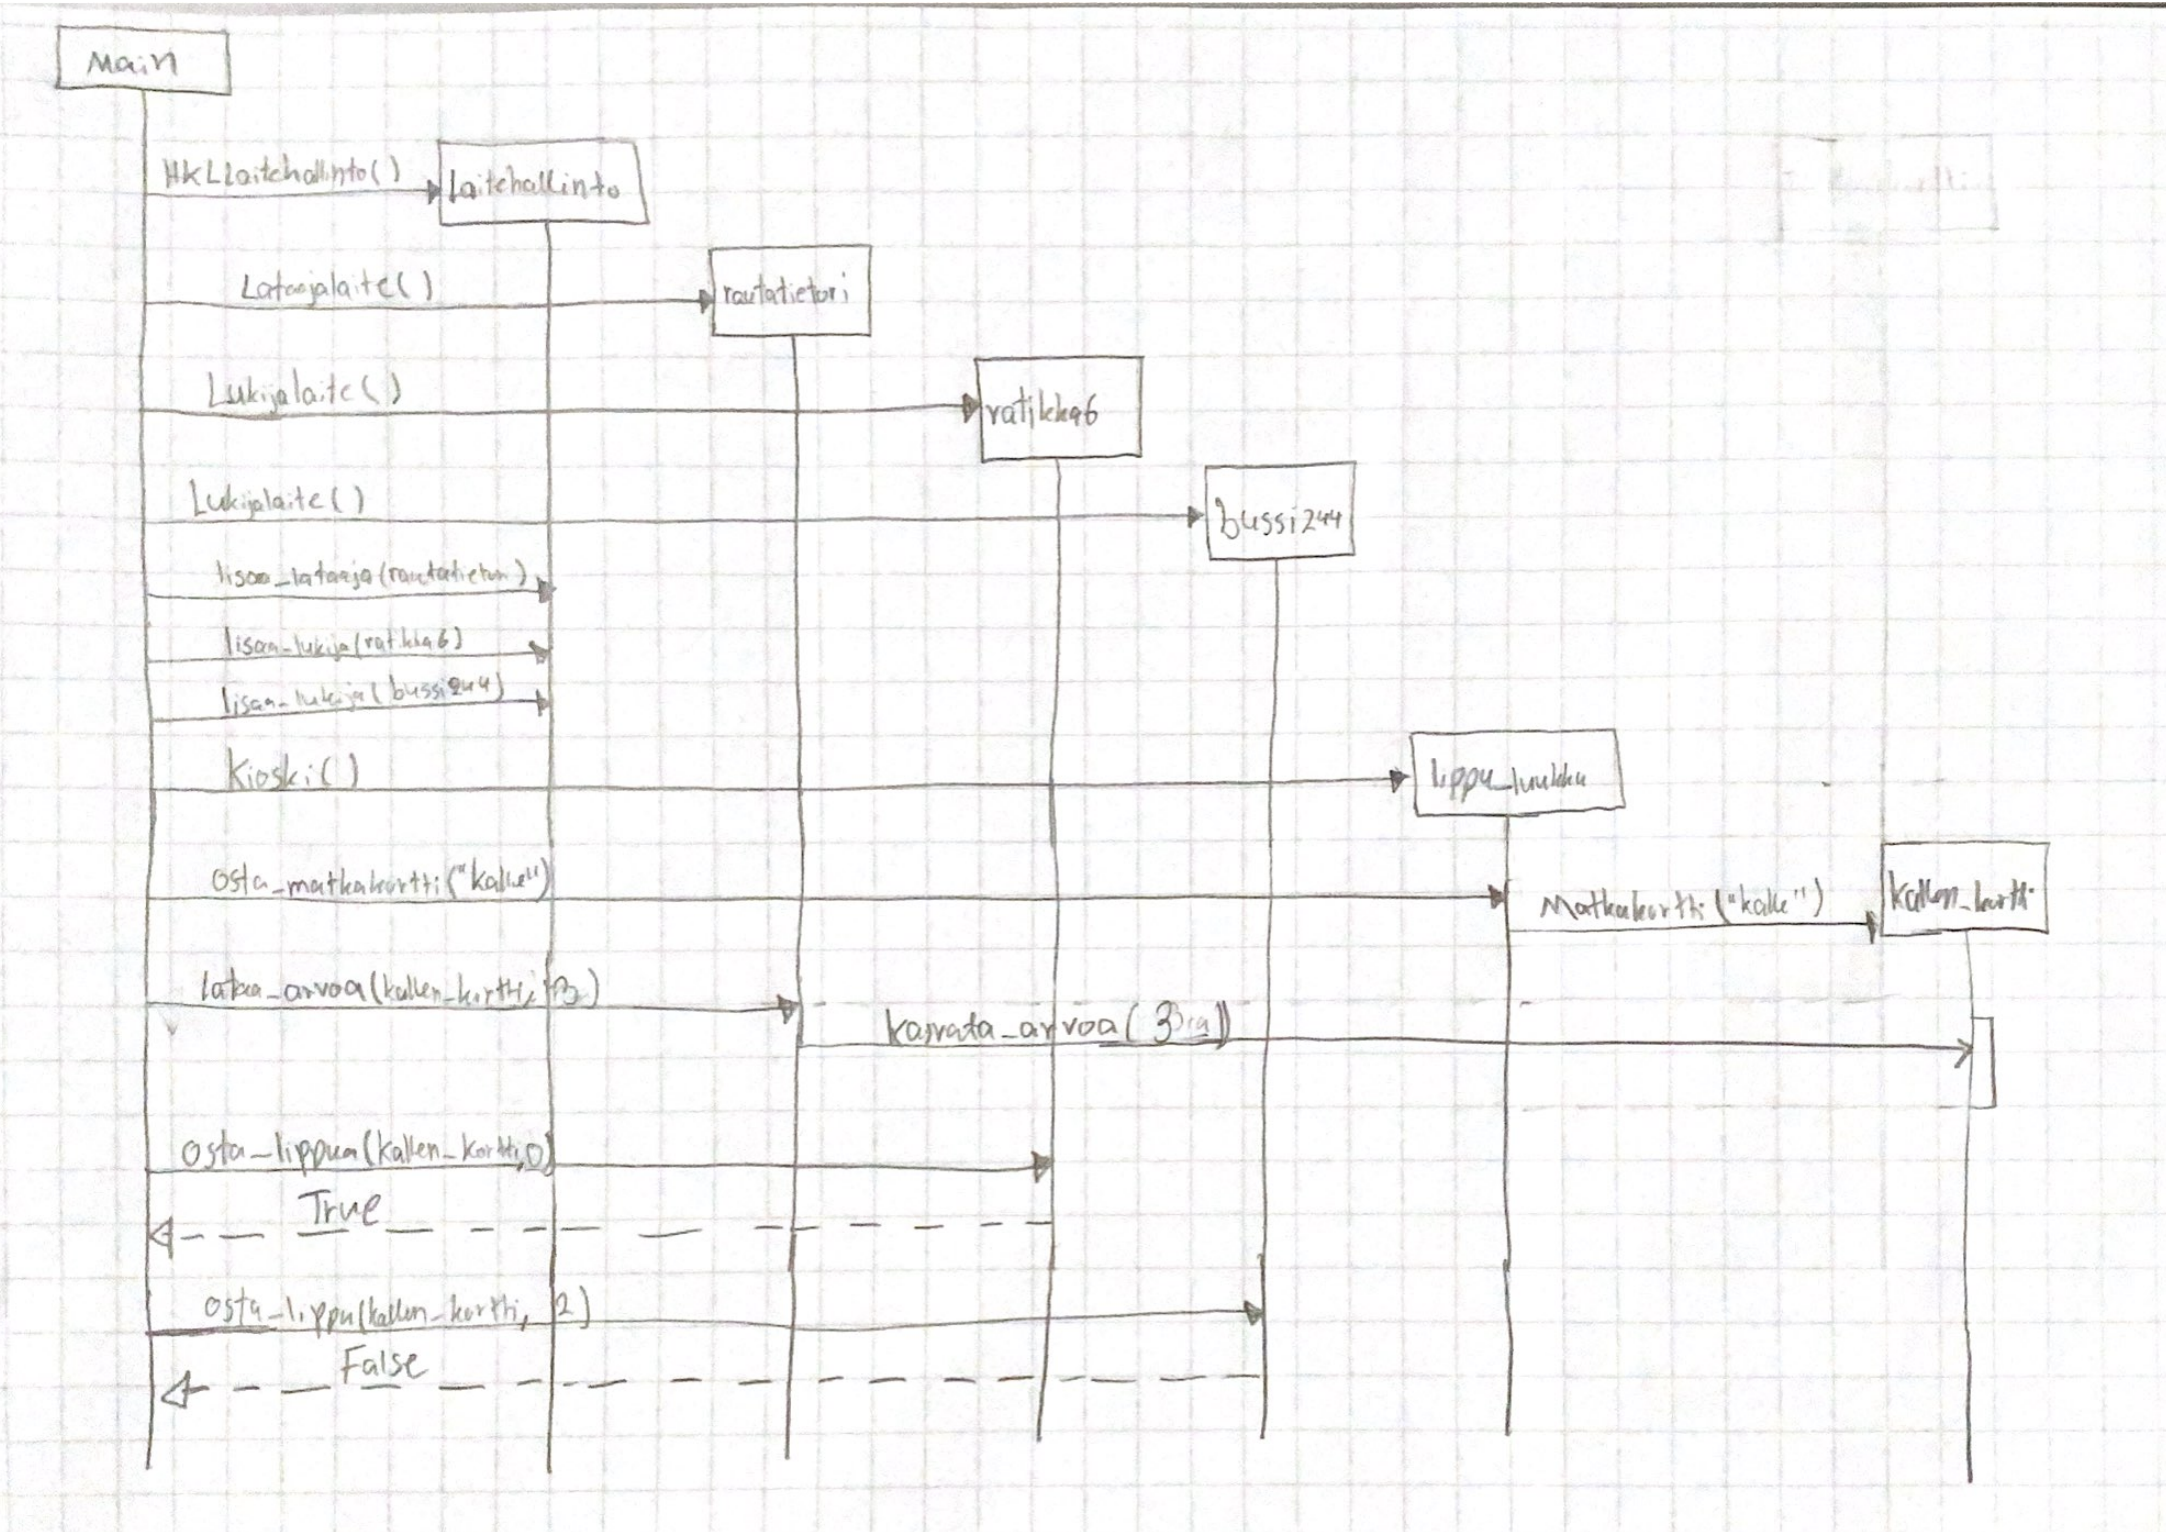 Main
HKLLaitehallinto()
laitehallinto
Lataajalaite()
rautatietori
Lukijalaite()
ratikka6
Lukijalaite()
bussi244
lisaa_lataaja(rautatietori)
lisaa_lukija(ratikka6)
lisaa_lukija(bussi244)
Kioski()
lippu_luukku
osta_matkakortti("kalle")
Matkakortti("kalle")
kallen_kortti
lataa_arvoa(kallen_kortti, 3)
kasvata_arvoa(3)
osta_lippua(kallen_kortti,0)
True
osta_lippu(kallen_kortti, 2)
False